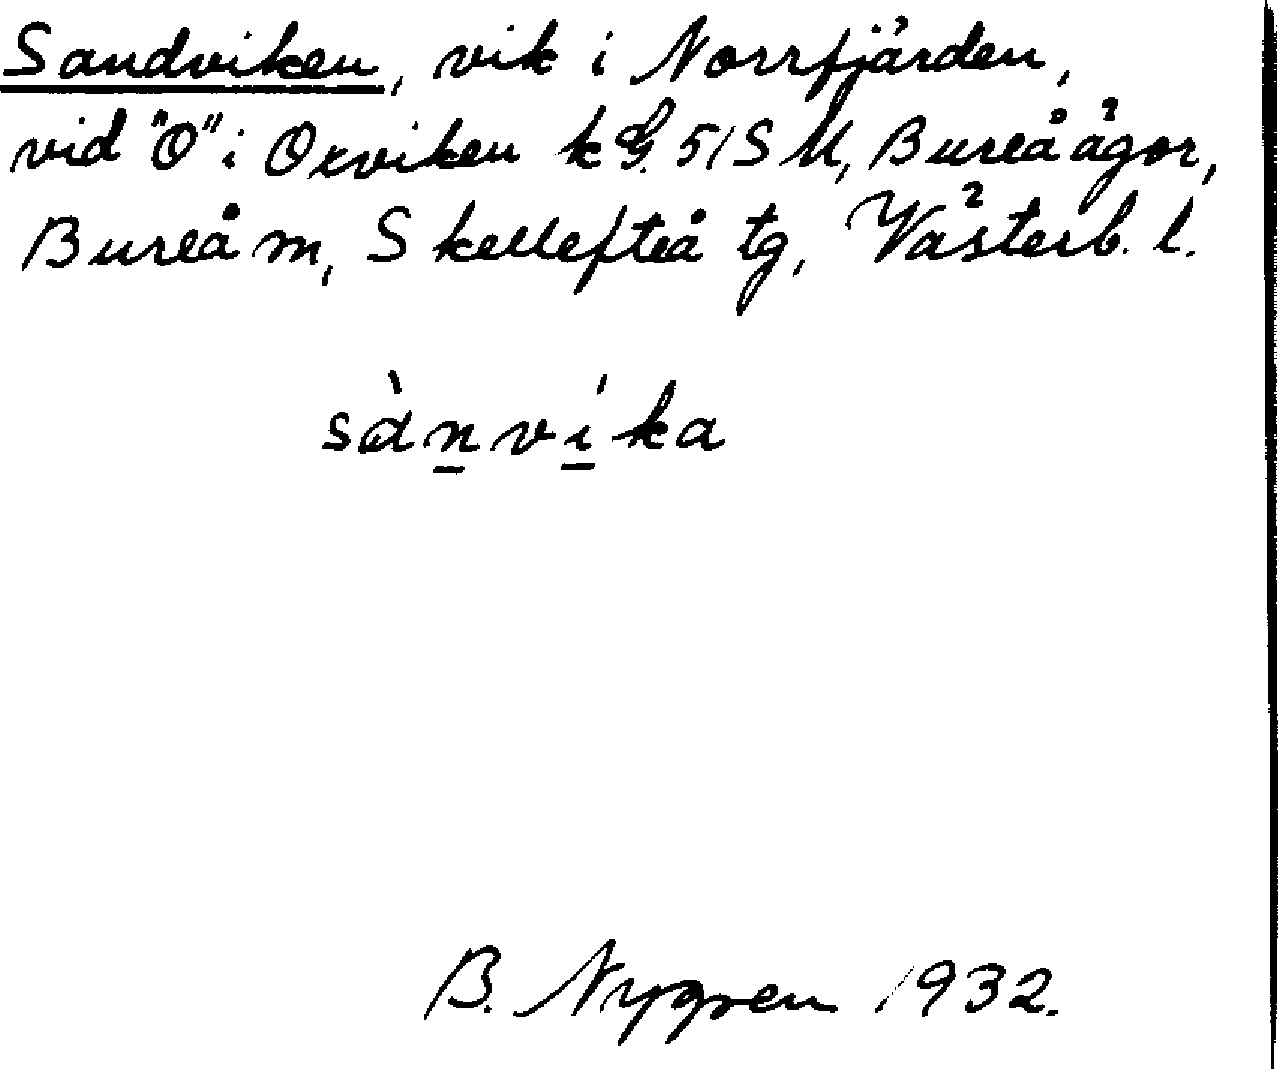 Sandviken, vik i Norrfjärden,
vid "O" i Orviken kG. 51 S M, Bureå ägor,
Bureå m, Skellefteå tg, Västerb. l.
sànvíka
B. Nygren 1932.